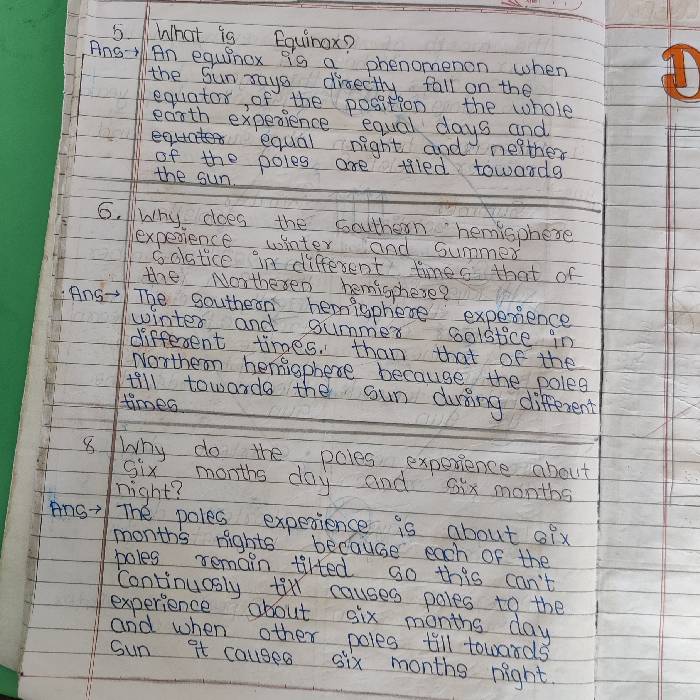 5. What is Equinox?
Ans→ An equinox is a phenomenon when
the sun rays directly fall on the
equator, of the position the whole
earth experience equal days and
equater equal night and neither
of the poles are tiled towards
the sun.
6. Why does the southern hemisphere
experience winter and summer
solstice in different times that of
the Northeren hemisphere?
Ans→ The southern hemisphere experience
winter and summer solstice in
different times. than that of the
Northern hemisphere because the poles
till towards the sun during different
times.
8 Why do the poles experience about
six months day and six months
night?
Ans→ The poles experience is about six
months nights because each of the
poles remain tilted so this can't
Continuosly till causes poles to the
experience about six months day
and when other poles till towards
sun it causes six months night.
D